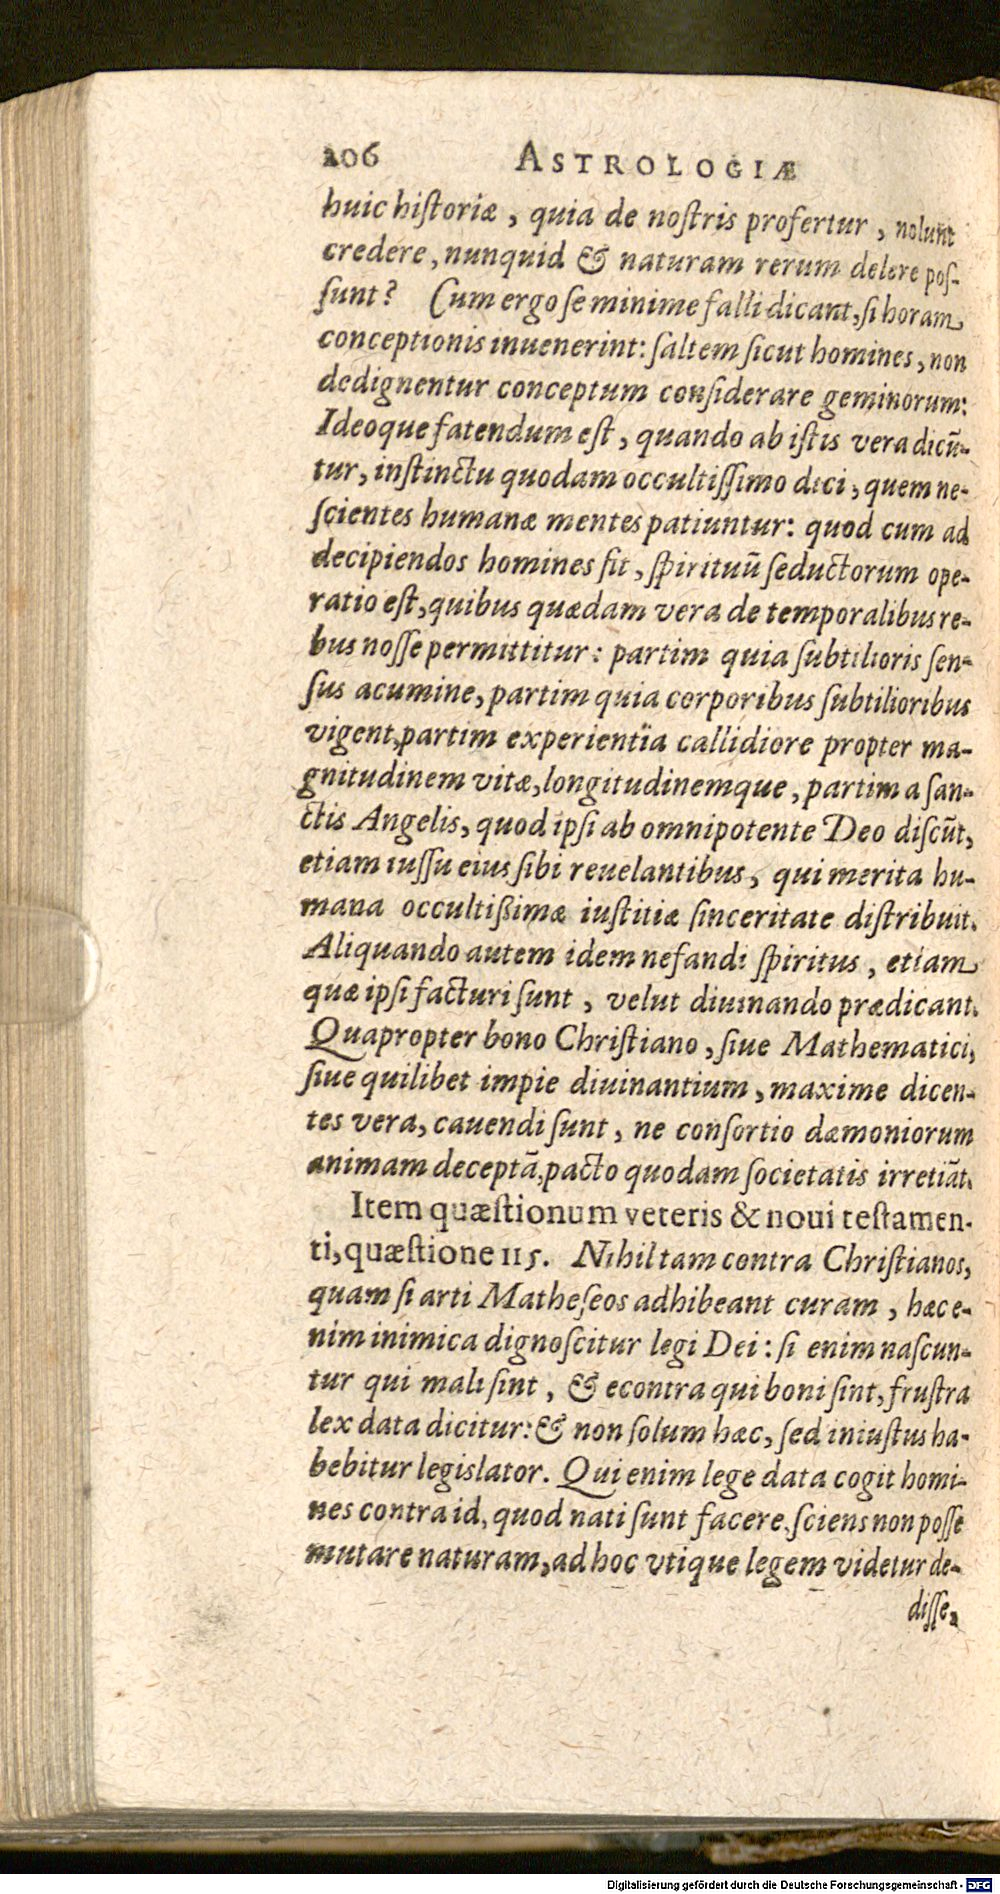 206 ASTROLOGIÆ
huic hiſtoriæ, quia de noſtris profertur, nolunt
credere, nunquid & naturam rerum delere poſ-
ſunt? Cum ergo ſe minime falli dicant, ſi horam
conceptionis inuenerint: ſaltem ſicut homines, non
dedignentur conceptum conſiderare geminorum:
Ideoque fatendum eſt, quando ab iſtis vera dicũ-
tur, inſtinctu quodam occultiſſimo dici, quem ne-
ſcientes humanæ mentes patiuntur: quod cum ad
decipiendos homines fit, ſpirituũ ſeductorum ope-
ratio eſt, quibus quædam vera de temporalibus re-
bus noſſe permittitur: partim quia ſubtilioris ſen-
ſus acumine, partim quia corporibus ſubtilioribus
vigent, partim experientia callidiore propter ma-
gnitudinem vitæ, longitudinemque, partim a ſan-
ctis Angelis, quod ipſi ab omnipotente Deo diſcũt,
etiam iuſſu eius ſibi reuelantibus, qui merita hu-
mana occultißimæ iuſtitiæ ſinceritate diſtribuit.
Aliquando autem idem nefandi ſpiritus, etiam
quæ ipſi facturi ſunt, velut diuinando prædicant.
Quapropter bono Chriſtiano, ſiue Mathematici,
ſiue quilibet impie diuinantium, maxime dicen-
tes vera, cauendi ſunt, ne conſortio dæmoniorum
animam deceptã, pacto quodam ſocietatis irretiãt.
Item quæſtionum veteris & noui teſtamen-
ti, quæſtione 115. Nihil tam contra Chriſtianos,
quam ſi arti Matheſeos adhibeant curam, hæc e-
nim inimica dignoſcitur legi Dei: ſi enim naſcun-
tur qui mali ſint, & econtra qui boni ſint, fruſtra
lex data dicitur: & non ſolum hæc, ſed iniuſtus ha-
bebitur legislator. Qui enim lege data cogit homi-
nes contra id, quod nati ſunt facere, ſciens non poſſe
mutare naturam, ad hoc vtique legem videtur de-
diſſe,
Digitalisierung gefördert durch die Deutsche Forschungsgemeinschaft - DFG